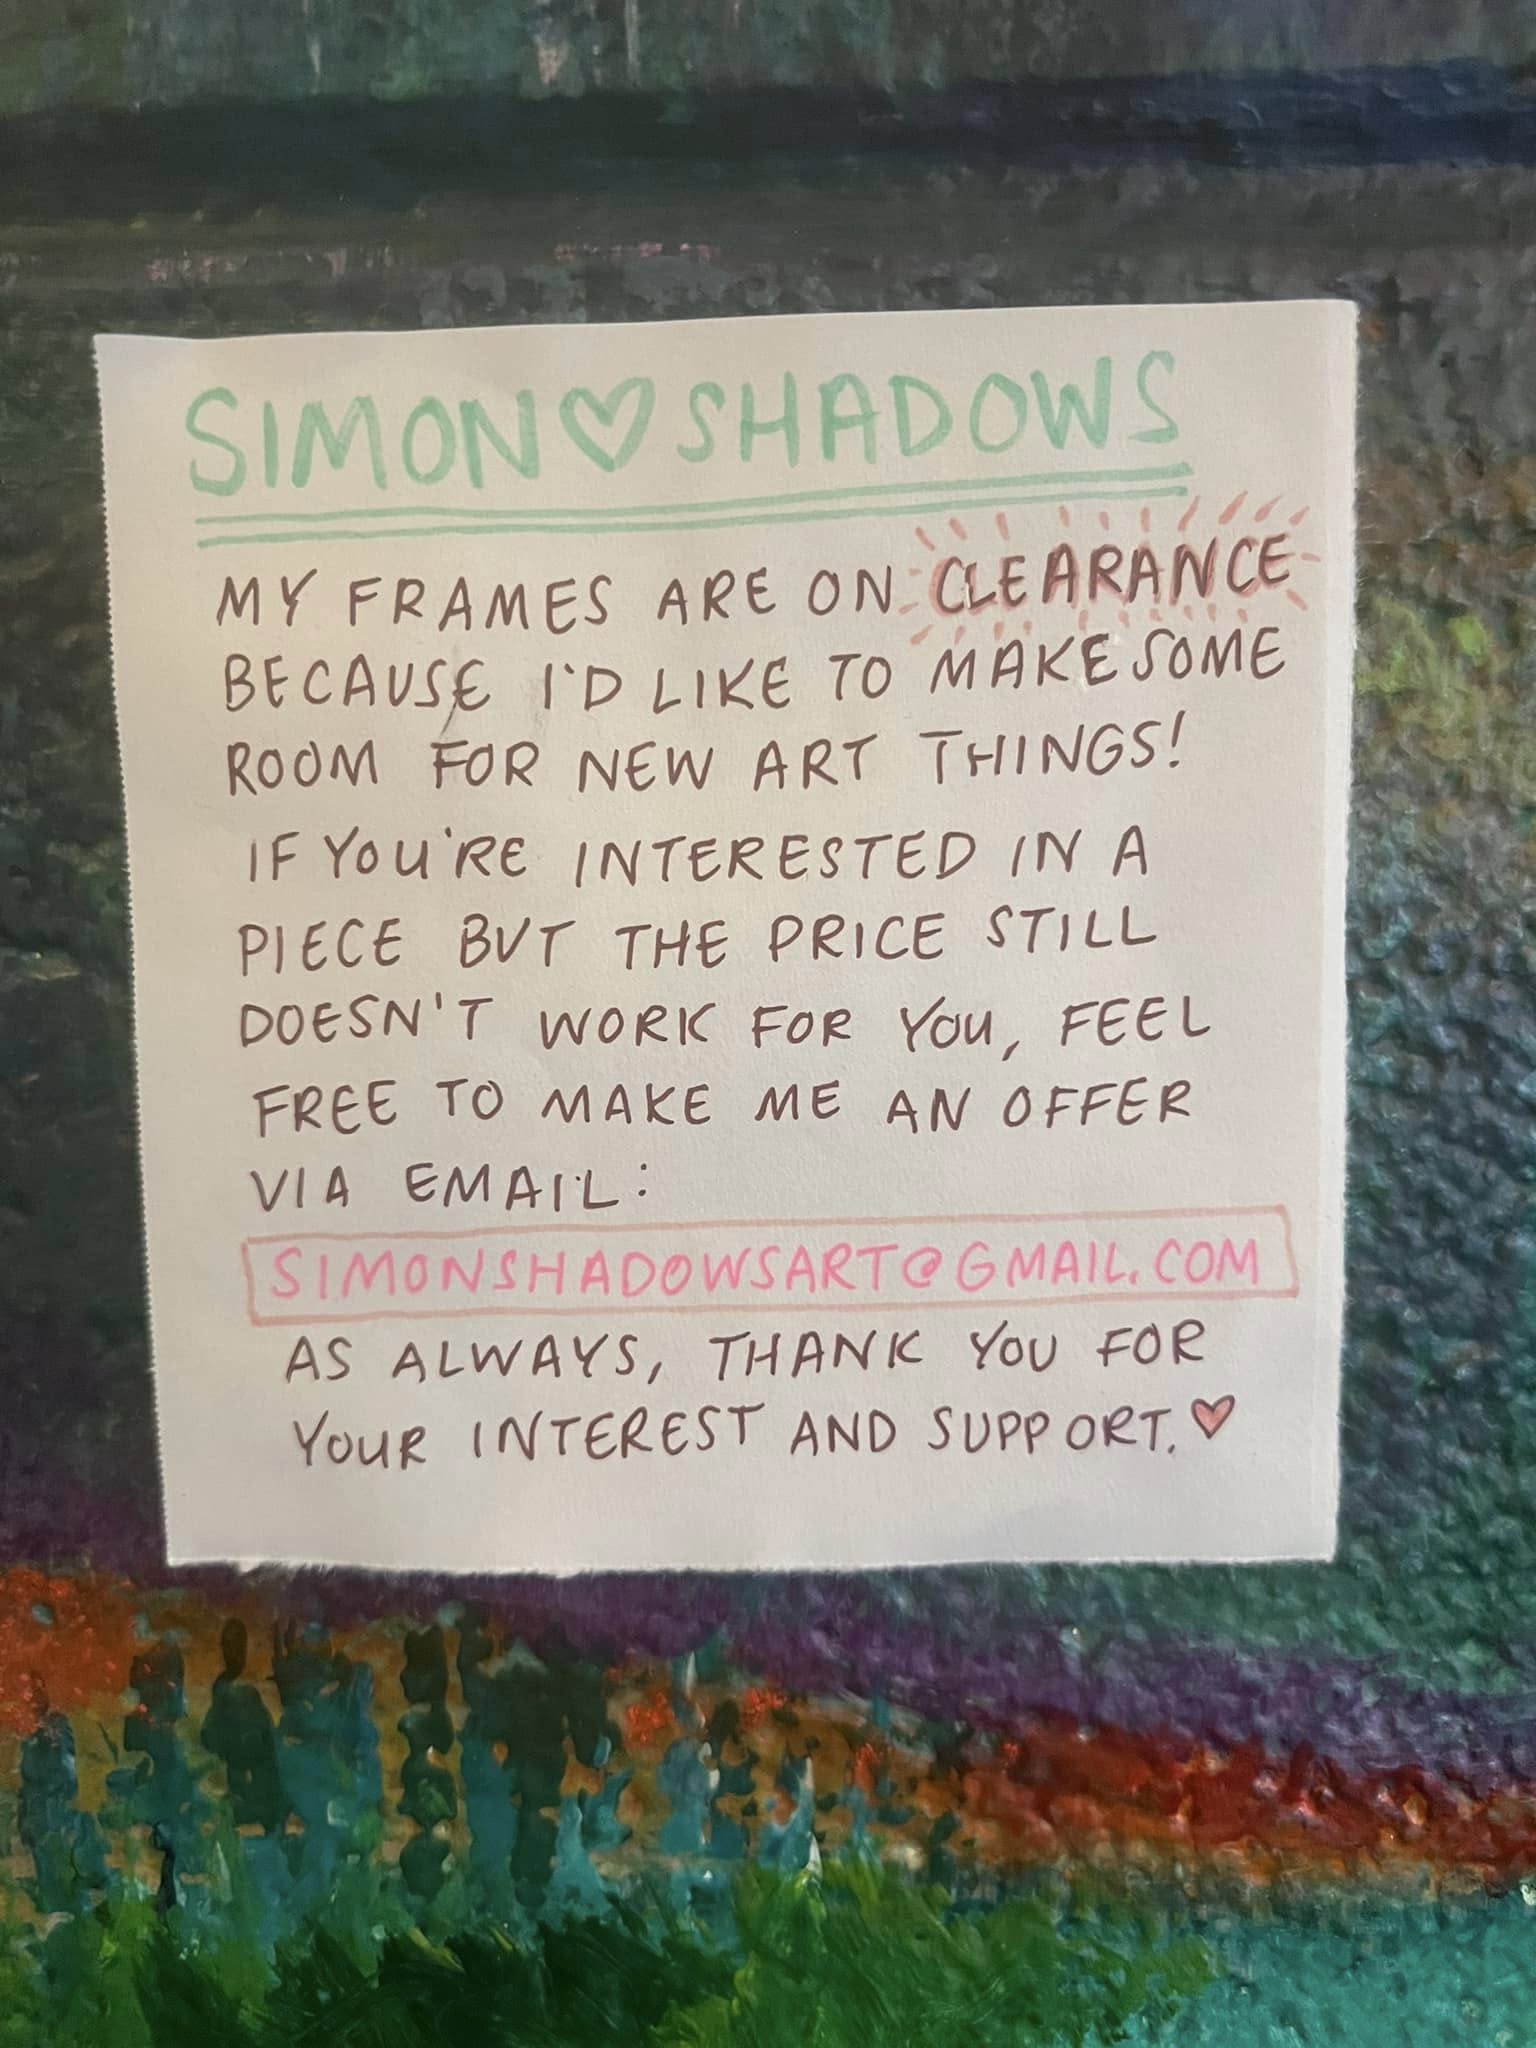 SIMON♡SHADOWS
MY FRAMES ARE ON CLEARANCE
BECAUSE I'D LIKE TO MAKE SOME
ROOM FOR NEW ART THINGS!
IF YOU'RE INTERESTED IN A
PIECE BUT THE PRICE STILL
DOESN'T WORK FOR YOU, FEEL
FREE TO MAKE ME AN OFFER
VIA EMAIL:
SIMONSHADOWSART@GMAIL.COM
AS ALWAYS, THANK YOU FOR
YOUR INTEREST AND SUPPORT.♡